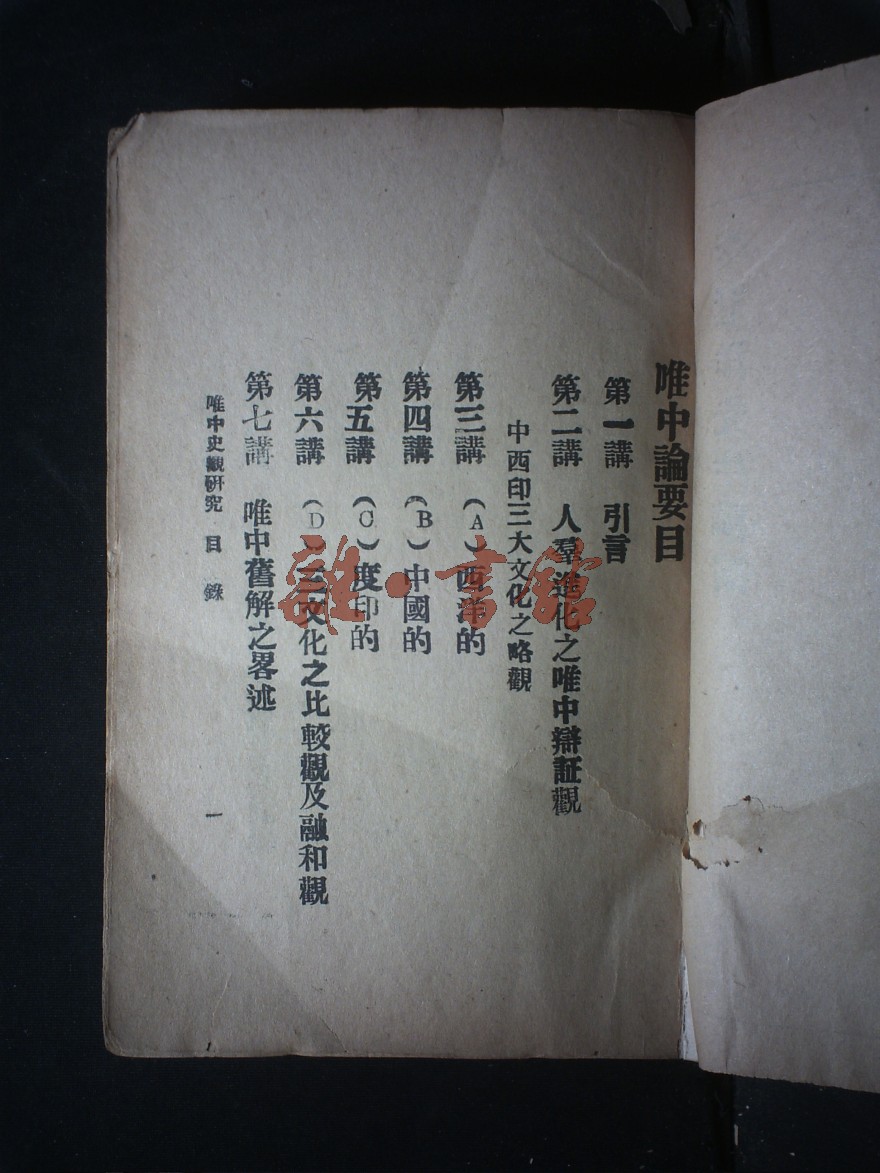 唯中論要目
第一講 引言
第二講 人羣進化之唯中辯証觀
中西印三大文化之略觀
第三講 (A)西洋的
第四講 (B)中國的
第五講 (C)度印的
第六講 (D)三文化之比較觀及融和觀
第七講 唯中舊解之畧述
唯中史觀研究 目錄 一
雜·書館